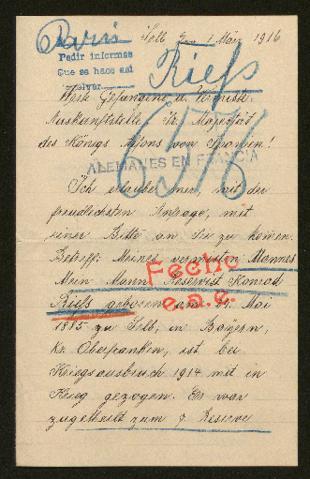 Paris
Selb den 1 März 1916
Pedir informes
Que se hace asi
Riefs
Werte Gefangene u. Vermisste
Auskunftstelle Sr. Majestät
des Königs Alfons von Spanien!
6576
ALEMANES EN FRANCIA
Ich erlaube mir mit der
freundlichsten Anfrage, mit
einer Bitte an Sie zu kommen.
Betreff: Meines vermissten Mannes
Mein Mann Reservist Konrad
Fecho
Riefs geboren am Mai
e.a.c.
1885 zu Selb, in Bayern,
Kr. Oberfranken, ist bei
Kriegsausbruch 1914 mit in
Krieg gezogen. Er war
zugetheilt zum 7. Reserve